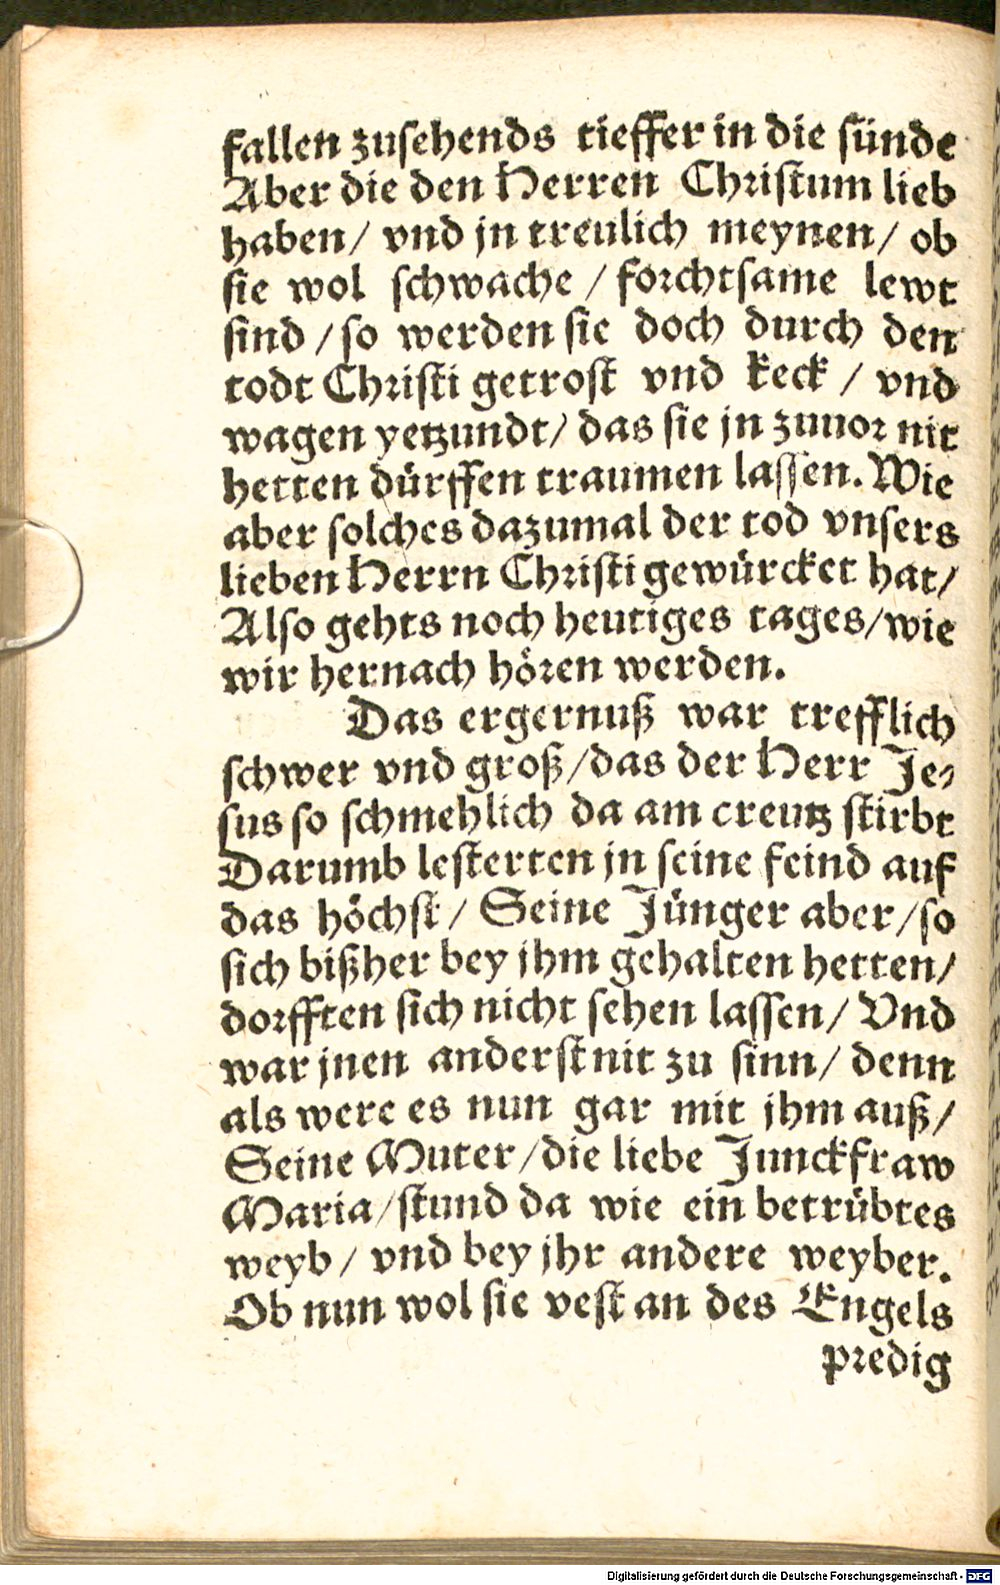 fallen zusehends tieffer in die sünde
Aber die den Herren Christum lieb
haben/ vnd jn treulich meynen/ ob
sie wol schwache / forchtsame lewt
sind / so werden sie doch durch den
todt Christi getrost vnd keck / vnd
wagen yetzundt/ das sie jn zuuor nit
hetten dürffen traumen lassen. Wie
aber solches dazumal der tod vnsers
lieben Herrn Christi gewürcket hat/
Also gehts noch heutiges tages/wie
wir hernach hören werden.
Das ergernuß war trefflich
schwer vnd groß/das der Herr Je-
sus so schmehlich da am creutz stirbt
Darumb lesterten jn seine feind auf
das höchst/ Seine Jünger aber/so
sich bißher bey jhm gehalten hetten/
dorfften sich nicht sehen lassen/ Vnd
war jnen anderst nit zu sinn/ denn
als were es nun gar mit jhm auß/
Seine Muter/die liebe Junckfraw
Maria/stund da wie ein betrübtes
weyb/ vnd bey jhr andere weyber.
Ob nun wol sie vest an des Engels
predig
Digitalisierung gefördert durch die Deutsche Forschungsgemeinschaft - DFG